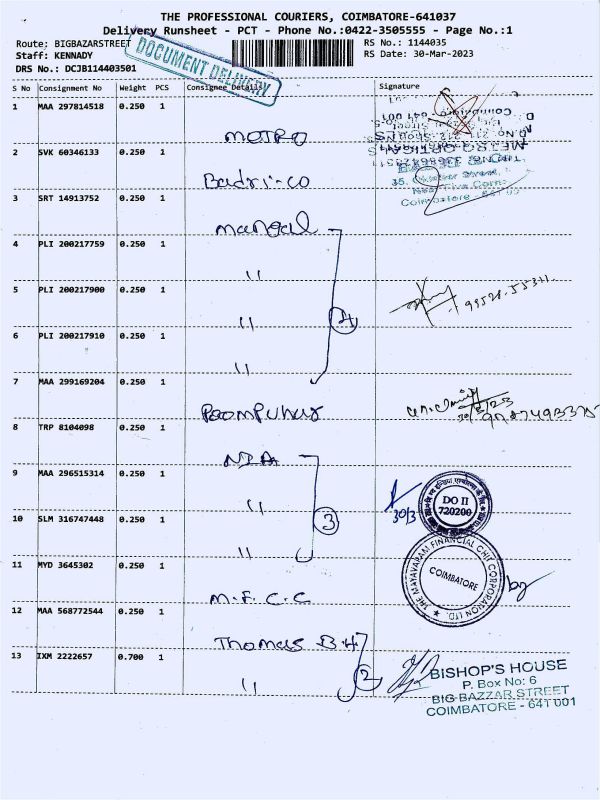 THE PROFESSIONAL COURIERS, COIMBATORE-641037
Delivery Runsheet - PCT - Phone No.:0422-3505555 - Page No.:1
Route: BIGBAZARSTREET
RS No.: 1144035
Staff: KENNADY
RS Date: 30-Mar-2023
DRS No.: DCJB114403501
DOCUMENT DELIVERY
S No Consignment No Weight PCS Consignee Details Signature
1 MAA 297814518 0.250 1 METRO
2 SVK 60346133 0.250 1 Badri-co
3 SRT 14913752 0.250 1 Mangal
4 PLI 200217759 0.250 1 "
5 PLI 200217900 0.250 1 "
6 PLI 200217910 0.250 1 "
4
7 MAA 299169204 0.250 1 Poompuhar
30/3/23
8 TRP 8104098 0.250 1 NIA
9 MAA 296515314 0.250 1 "
10 SLM 316747448 0.250 1 "
3
30/3
DO II
720200
11 MYD 3645302 0.250 1 M.F.C.C
THE MAYAVARAM FINANCIAL CHIT CORPORATION LTD.
COIMBATORE
12 MAA 568772544 0.250 1 Thomas B.H
13 IXM 2222657 0.700 1 "
2
BISHOP'S HOUSE
P. Box No: 6
BIG BAZZAR STREET
COIMBATORE - 641 001